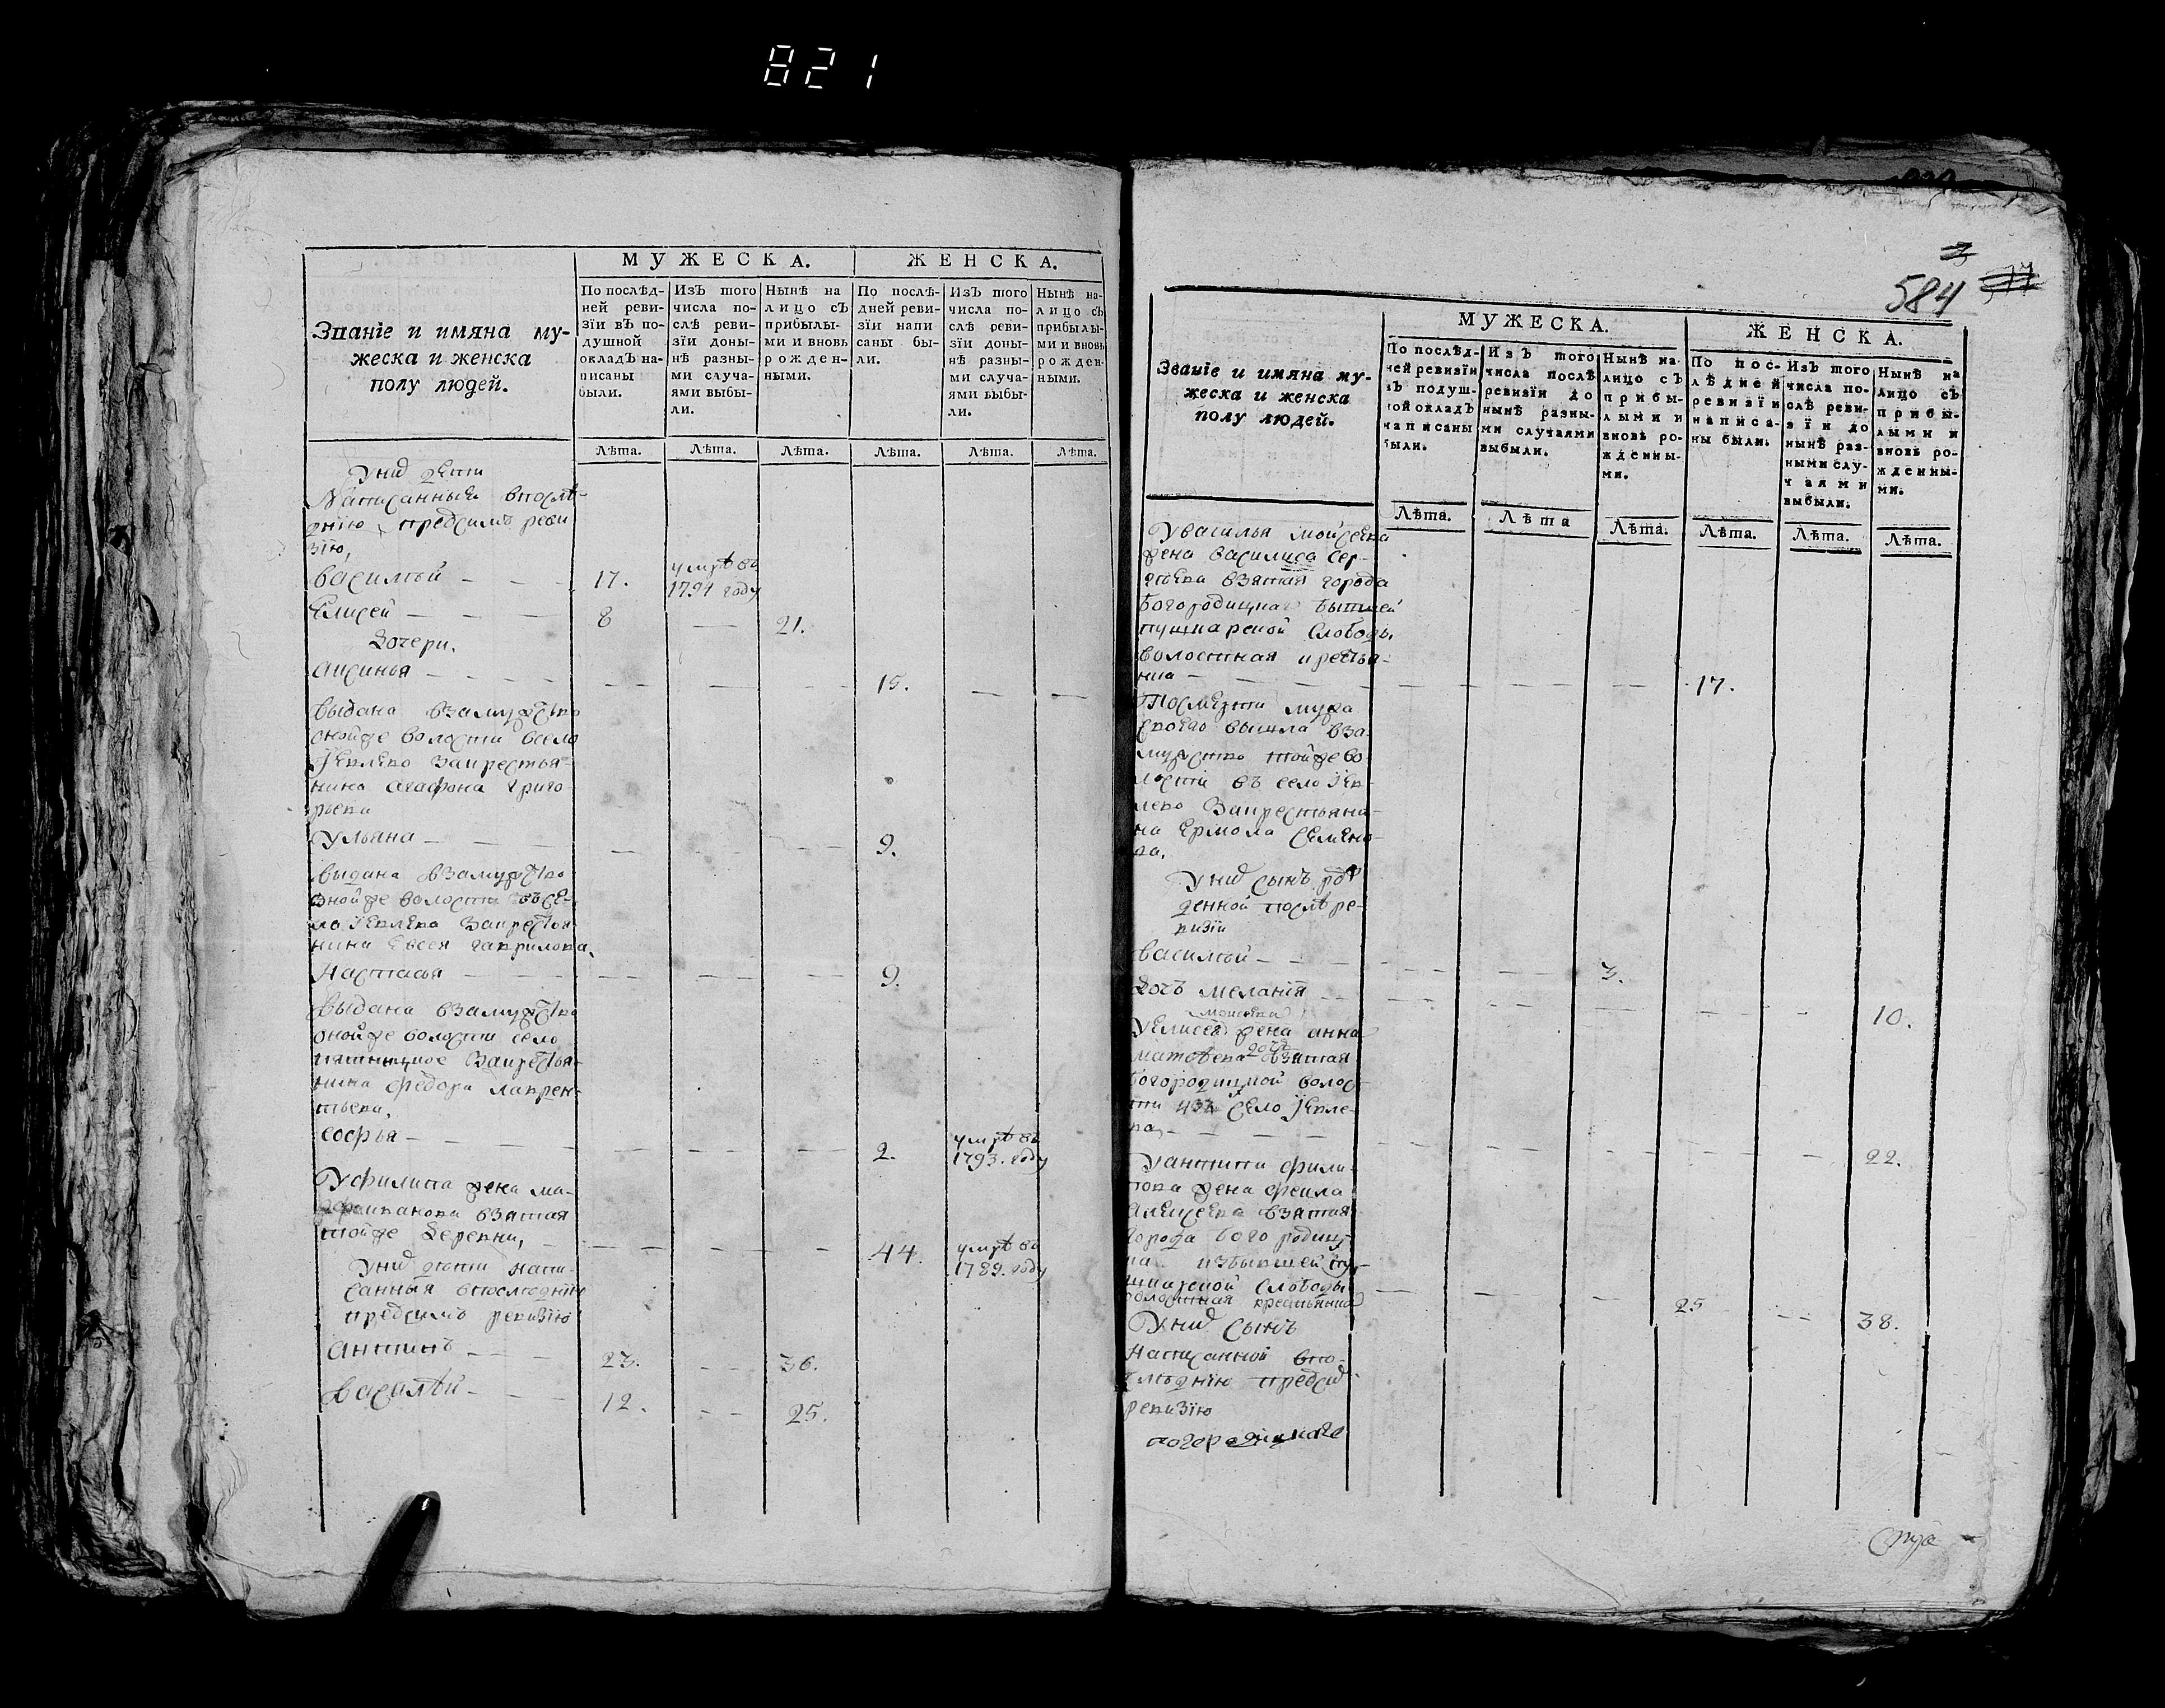 821
МУЖЕСКА.
ЖЕНСКА.
Званїе и имяна му-
жеска и женска
полу людей.
По послѣд-
ней реви-
зїи въ по-
душной
окладъ на-
писаны
были.
Изъ того
числа по-
слѣ реви-
зїи доны-
нѣ разны-
ми случа-
ями выбы-
ли.
Нынѣ на
лицо съ
прибылы-
ми и вновь
рожден-
ными.
По послѣ-
дней реви-
зїи напи
саны бы-
ли.
Изъ того
числа по-
слѣ реви-
зїи доны-
нѣ разны-
ми случа-
ями выбы-
ли.
Нынѣ на-
лицо съ
прибылы-
ми и вновь
рожден-
ными.
Лѣта. Лѣта. Лѣта. Лѣта. Лѣта. Лѣта.
У них дети
Написанныя впослѣ-
днїю предсимъ реви
зїю,
василей 17. умре въ
1791 году
Елисей 8 21.
Дочери.
аксинья 15.
выдана взамужство
оной же волости всело
Іевлево закрестья-
нина агафона григо-
рьева
Ульяна 9.
выдана взамужство
оной же волости въ се-
ло Іевлево закрестья-
нина Евсея гаврилова,
Настасья 9.
выдана взамужство
оной же волости село
закрестья-
нина федора лаврен-
тьева,
софья 2. умре въ
1793. году
У филипа жена ма-
взятая
той же деревни, 44. умре въ
1789. году
У них дети напи-
санныя впоследнїю
предсимъ ревизїю
антипъ 23. 36.
василей 12. 25.
3
584
МУЖЕСКА.
ЖЕНСКА.
Званїе и имяна му-
жеска и женска
полу людей.
По послѣд-
ней ревизїи
въ подуш-
ной окладъ
написаны
были.
Изъ того
числа послѣ
ревизїи до
нынѣ разны-
ми случаями
выбыли.
Нынѣ на-
лицо съ
прибы-
лыми и
вновь ро-
жденны-
ми.
По пос-
лѣдней
ревизїи
написа-
ны были.
Изъ того
числа по-
слѣ реви-
зїи до
нынѣ раз-
ными слу-
чаями
выбыли.
Нынѣ на
лицо съ
прибы-
лыми и
вновь ро-
жденны-
ми.
Лѣта. Лѣта Лѣта. Лѣта. Лѣта. Лѣта.
У василья мойсеева
жена василиса сер-
геева взятая города
богородицка бытшей
пушкарской слободы
волостная крестья-
нка 17.
После
мужа
своего вышла вза-
мужство той же во
лости въ село Іев-
лево закрестьяни-
на Ермола Семено-
ва,
У них сынъ рож
денной послѣ ре-
визїи
василей 3.
Дочь меланїя 10.
моисеева
У Елисея жена анна
матвева дочь взятая
богородицкой волос
ти из села Іевле-
ва, 22.
У антипа фили-
пова жена фекла
алексеева взятая
города богородиц-
ка избывшей пу-
шкарской слободы
волостная крестьянка 25 38.
У них сынъ
написанной впо-
следнїю предсим
ревизїю